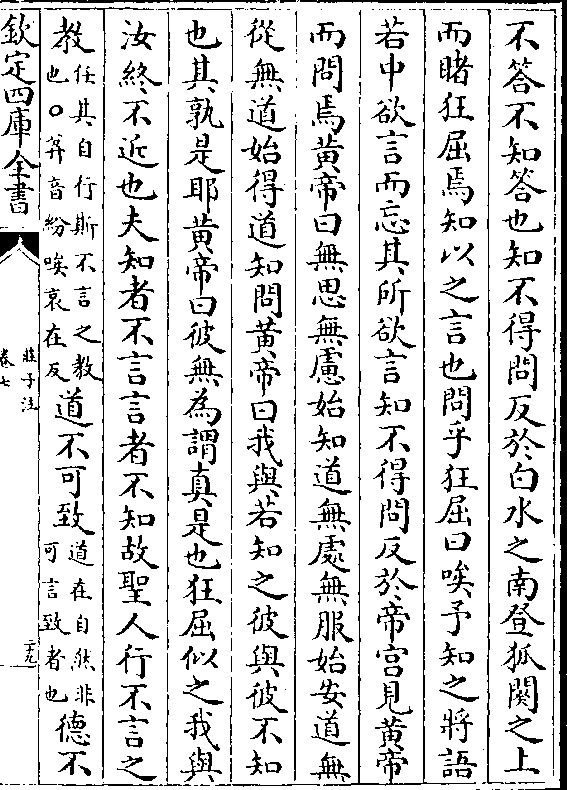 不答不知答也知不得問反於白水之南登狐闋之上
而睹狂屈焉知以之言也問乎狂屈曰唉予知之將語
若中欲言而忘其所欲言知不得問反於帝宫見黄帝
而問焉黄帝曰無思無慮始知道無處無服始安道無
從無道始得道知問黄帝曰我與若知之彼與彼不知
也其孰是耶黄帝曰彼無為謂真是也狂屈似之我與
汝終不近也夫知者不言言者不知故聖人行不言之
教任其自行斯不言之教也○葬音紛唉哀在反道不可致道在自然非可言致者也德不
欽定四庫全書
莊子注
卷七
二九